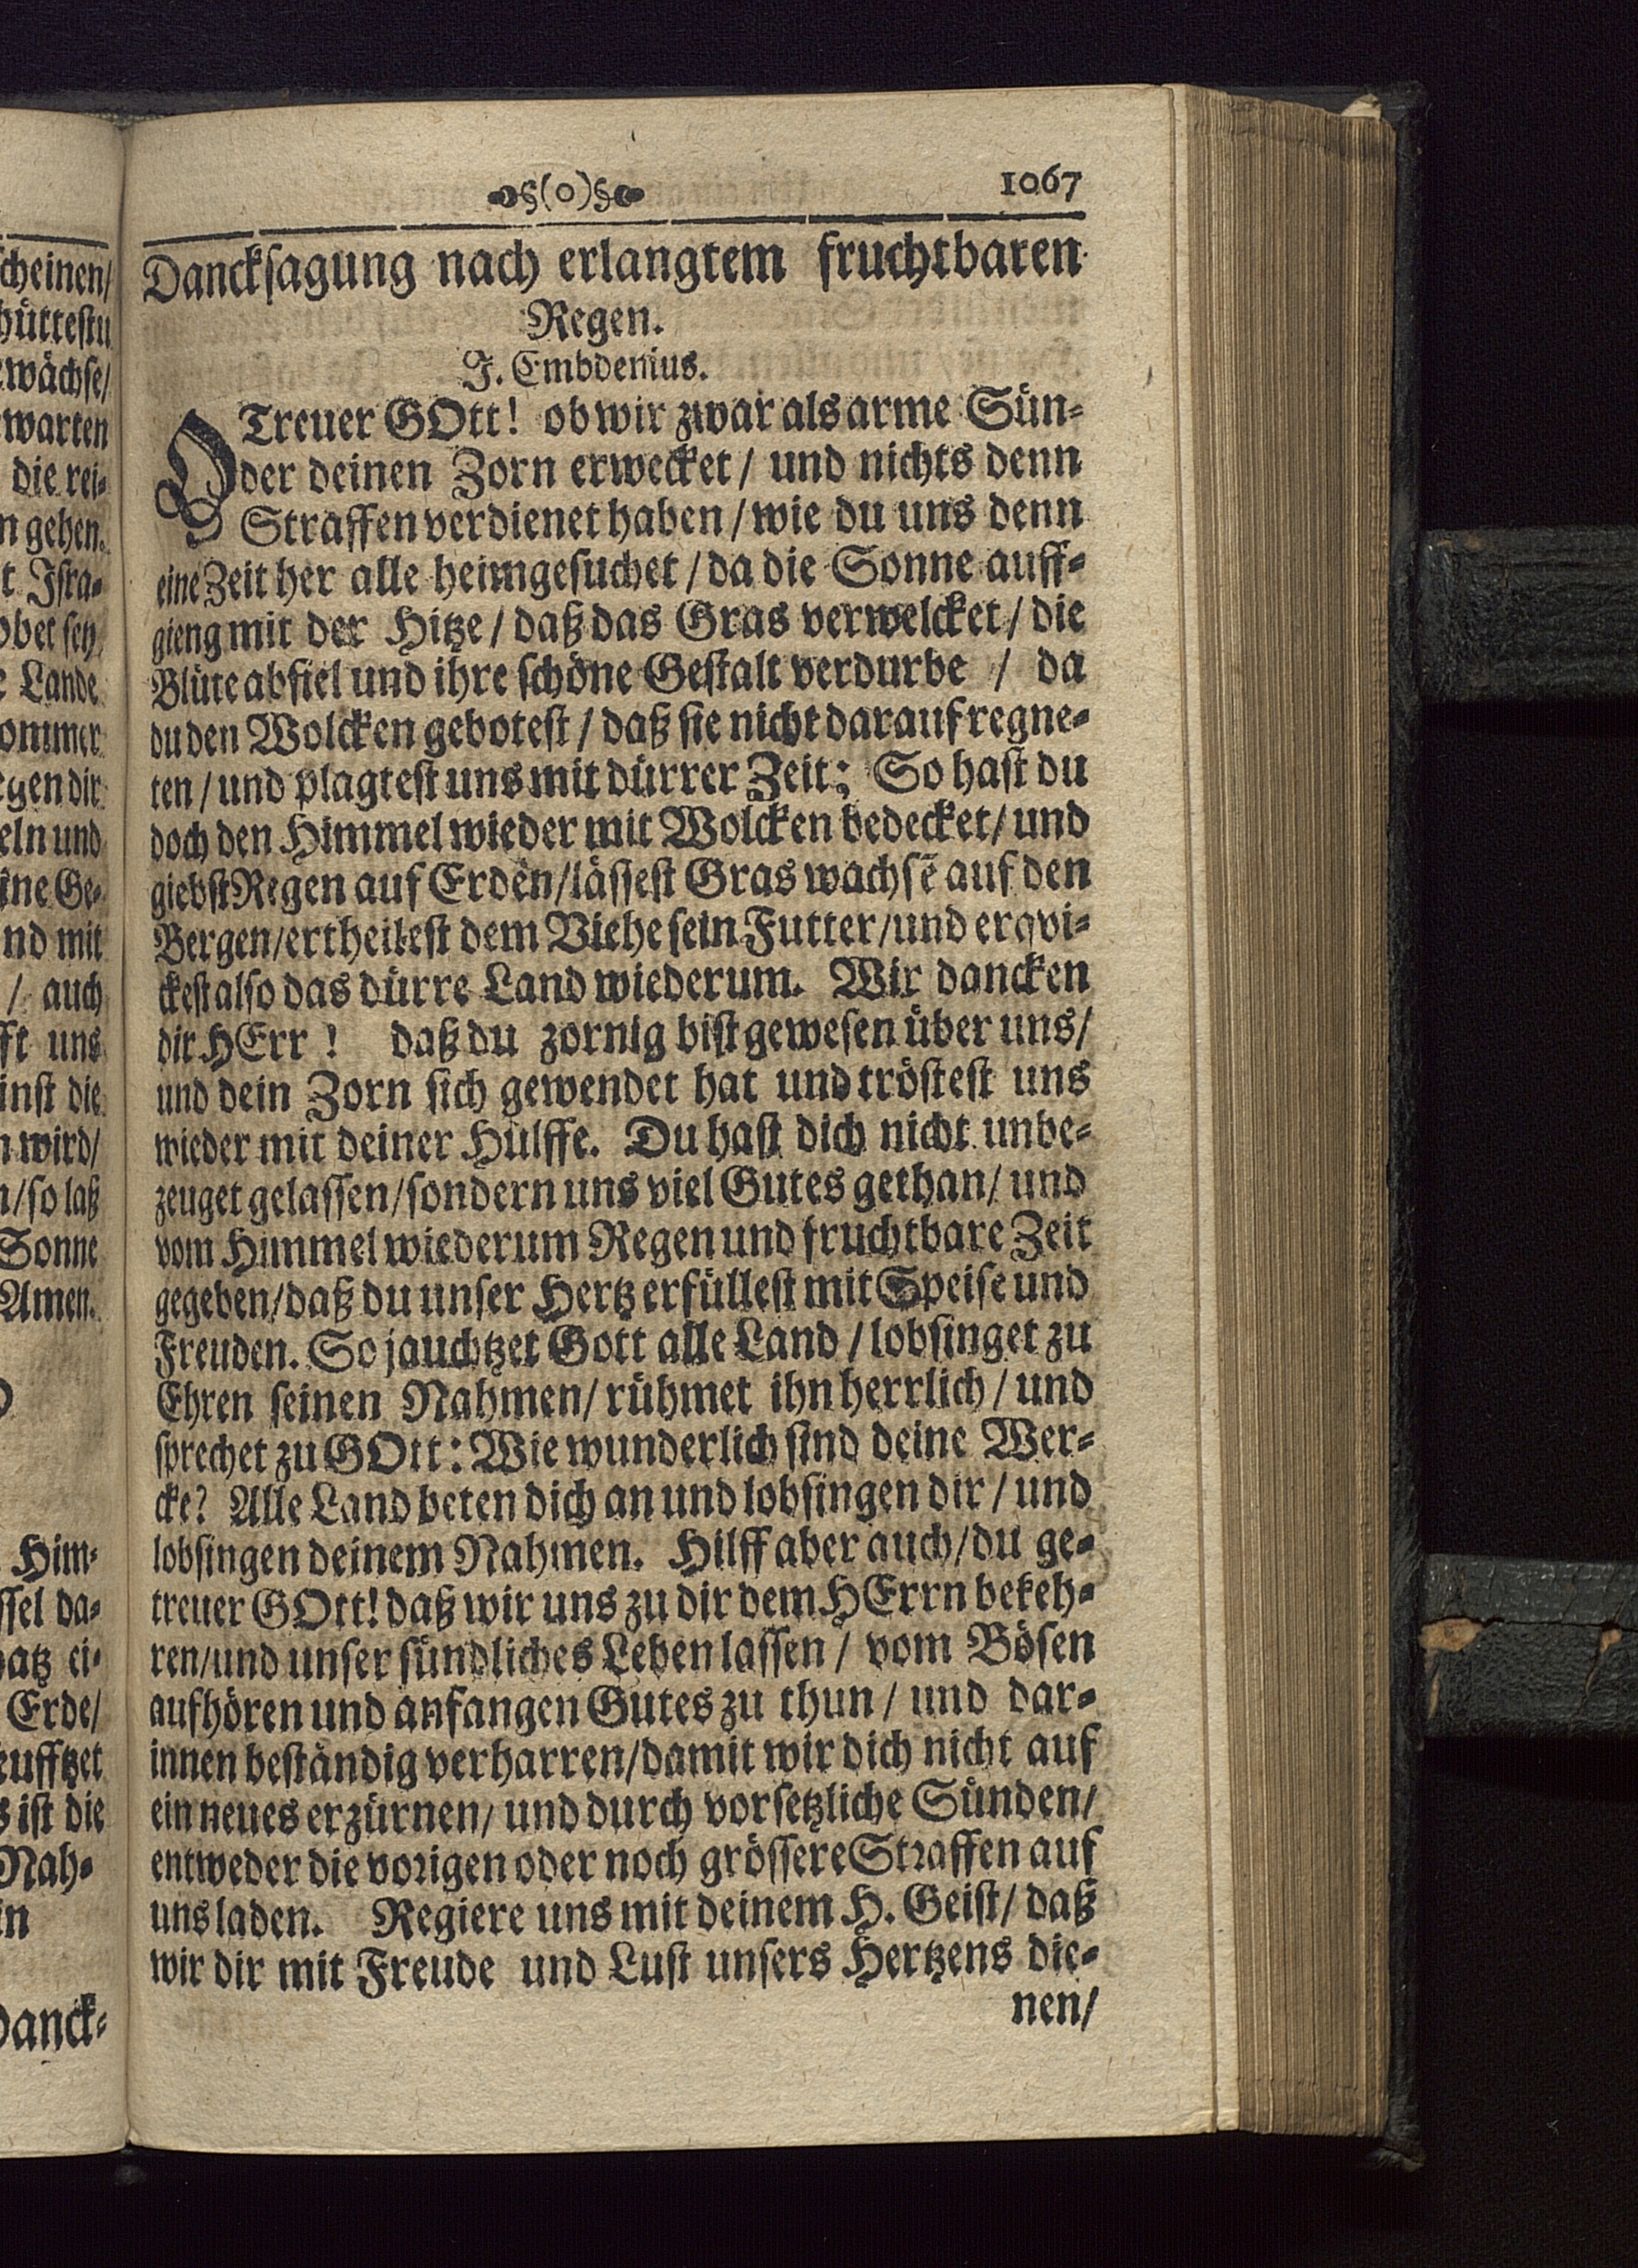 §(o)§ 1067
Dancksagung nach erlangtem fruchtbaren
Regen.
J. Embdenius.
O Treuer GOtt! ob wir zwar als arme Sün-
der deinen Zorn erwecket / und nichts denn
Straffen verdienet haben / wie du uns denn
eine Zeit her alle heimgesuchet / da die Sonne auff-
gieng mit der Hitze / daß das Gras verwelcket / die
Blüte abfiel und ihre schöne Gestalt verdurbe / da
du den Wolcken gebotest / daß sie nicht darauf regne-
ten / und plagtest uns mit dürrer Zeit; So hast du
doch den Himmel wieder mit Wolcken bedecket / und
giebst Regen auf Erden / lässest Gras wachsē auf den
Bergen / ertheilest dem Viehe sein Futter / und erqvi-
ckest also das dürre Land wiederum. Wir dancken
dir HErr! daß du zornig bist gewesen über uns /
und dein Zorn sich gewendet hat und tröstest uns
wieder mit deiner Hülffe. Du hast dich nicht unbe-
zeuget gelassen / sondern uns viel Gutes gethan / und
vom Himmel wiederum Regen und fruchtbare Zeit
gegeben / daß du unser Hertz erfüllest mit Speise und
Freuden. So jauchtzet Gott alle Land / lobsinget zu
Ehren seinen Nahmen / rühmet ihn herrlich / und
sprechet zu GOtt: Wie wunderlich sind deine Wer-
cke? Alle Land beten dich an und lobsingen dir / und
lobsingen deinem Nahmen. Hilff aber auch / du ge-
treuer GOtt! daß wir uns zu dir dem HErrn bekeh-
ren / und unser sündliches Leben lassen / vom Bösen
aufhören und anfangen Gutes zu thun / und dar-
innen beständig verharren / damit wir dich nicht auf
ein neues erzürnen / und durch vorsetzliche Sünden /
entweder die vorigen oder noch grössere Straffen auf
uns laden. Regiere uns mit deinem H. Geist / daß
wir dir mit Freude und Lust unsers Hertzens die-
nen /